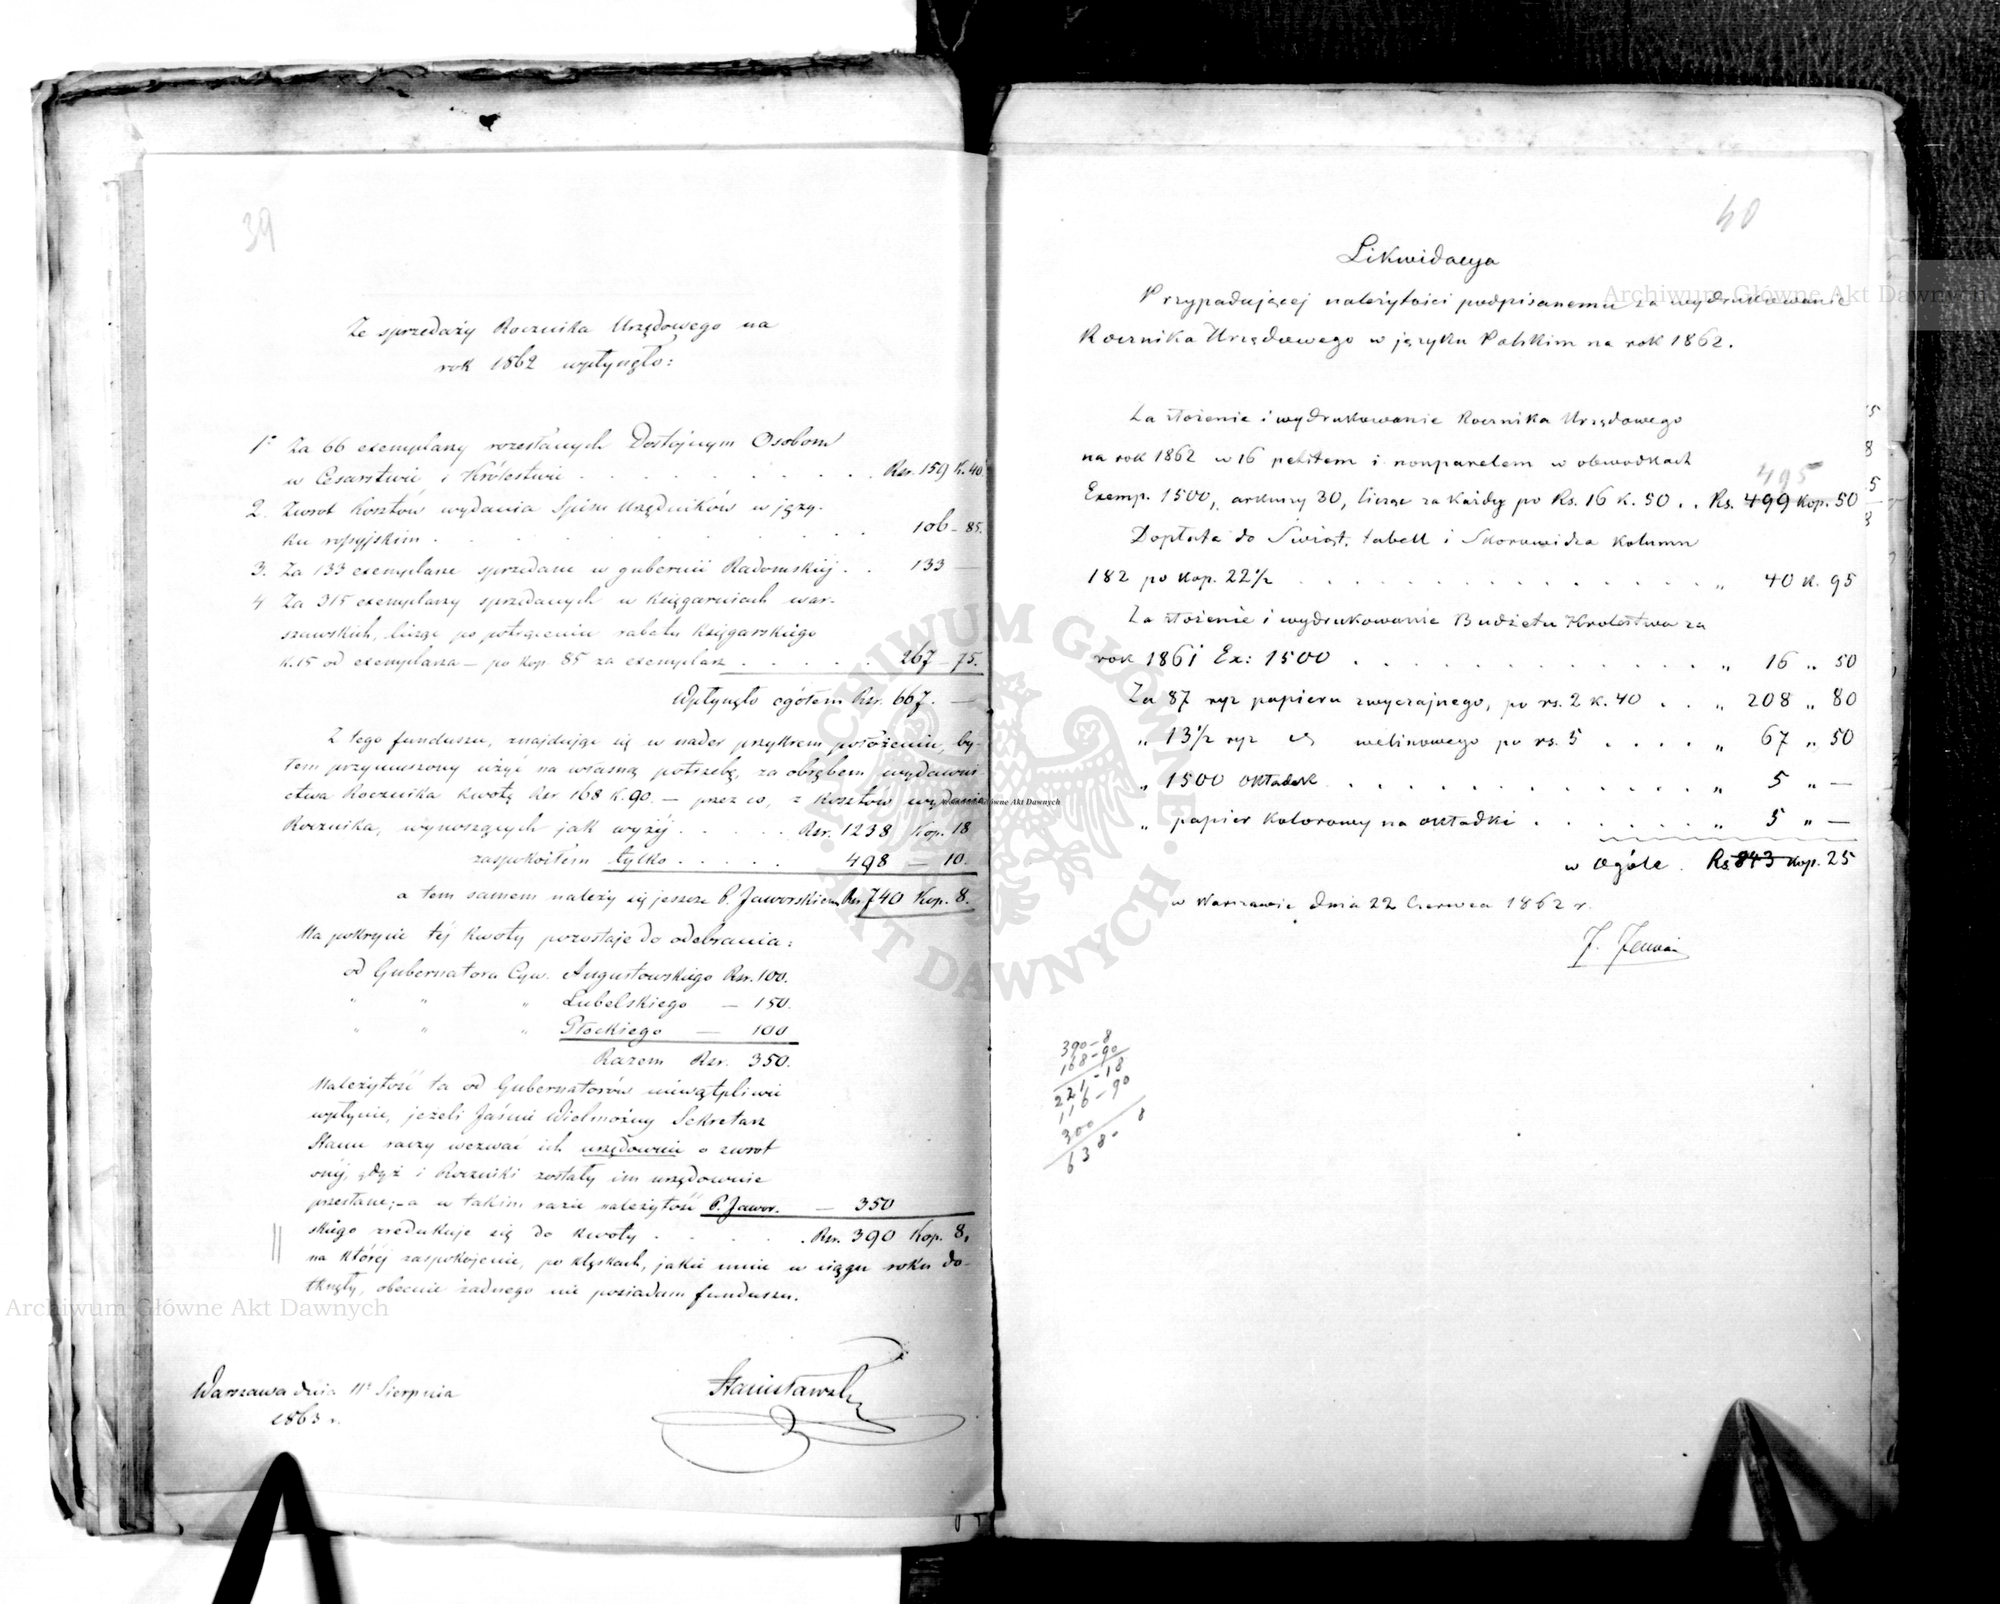 39
Ze sprzedaży Rocznika Urzędowego na
rok 1862 wpłynęło:
1° Za 66 exemplarzy rozesłanych Dostojnym Osobom
w Cesarstwie i Królestwie . . . . . . . . Rsr. 159 K. 40
2. Zwrot kosztów wydania Spisu Urzędników w języ-
ku rossyjskim . . . . . . . . 106 – 85.
3. Za 133 exemplarze sprzedane w gubernii Radomskiéj . . 133 —
4 Za 315 exemplarzy sprzedanych w księgarniach war-
szawskich, licząc po potrąceniu rabatu księgarskiego
K. 15 od exemplarza – po kop. 85 za exemplarz . . . . . 267 – 75.
Wpłynęło ogółem Rsr. 667. —
Z tego funduszu, znajdując się w nader przykrem położeniu, by-
łem przymuszony użyć na własną potrzebę, za obrębem wydawni-
ctwa Rocznika kwotę Rsr 168 K. 90. – przez co, z kosztów wydania
Rocznika, wynoszących jak wyżéj . . . . . Rsr. 1238 Kop. 18
zaspokoiłem tylko . . . . . 498 — 10.
a tem samem należy się jeszcze P. Jaworskiemu Rsr 740 Kop. 8.
Na pokrycie téj kwoty pozostaje do odebrania:
od Gubernatora Cyw. Augustowskiego Rsr. 100.
" " " Lubelskiego — 150.
" " " Płockiego — 100
Razem Rsr. 350.
Należytość ta od Gubernatorów niewątpliwie
wpłynie, jeżeli Jaśnie Wielmożny Sekretarz
Stanu raczy wezwać ich urzędownie o zwrot
onéj, gdyż i Roczniki zostały im urzędownie
przesłane; – a w takim razie należytość P. Jawor. — 350
skiego zredukuje się do kwoty . . . . . Rsr. 390 Kop. 8,
na któréj zaspokojenie, po klęskach, jakie mnie w ciągu roku do-
tknęły, obecnie żadnego nie posiadam funduszu.
Warszawa dnia 11 Sierpnia
1863 r.
40
Likwidacya
Przypadającej należytości podpisanemu za wydrukowanie
Rocznika Urzędowego w języku Polskim na rok 1862.
Za złożenie i wydrukowanie Rocznika Urzędowego
na rok 1862 w 16 petitem i nonparelem w obwodkach
495
Exemp. 1500, arkuszy 30, licząc za każdy po Rs. 16 k. 50 . . Rs. 499 kop. 50
Dopłata do Świąt, tabell i Skorowidza kolumn
182 po kop. 22½ . . . . . . . . „ 40 k. 95
Za złożenie i wydrukowanie Budżetu Krolestwa za
rok 1861 Ex: 1500 . . . . . . . . „ 16 „ 50
Za 87 ryz papieru zwyczajnego, po rs. 2 k. 40 . . „ 208 „ 80
„ 13½ ryz welinowego po rs. 5 . . . . „ 67 „ 50
„ 1500 okładek . . . . . . . . „ 5 „ —
„ papier kolorowy na okładki . . . . . . „ 5 „ —
w ogóle . Rs 843 kop. 25
w Warszawie dnia 22 Czerwca 1862 r.
390 – 8
168 – 90
221 – 18
116 – 90
300
638 – 8
Archiwum Główne Akt Dawnych
Archiwum Główne Akt Dawnych
ARCHIWUM GŁÓWNE AKT DAWNYCH